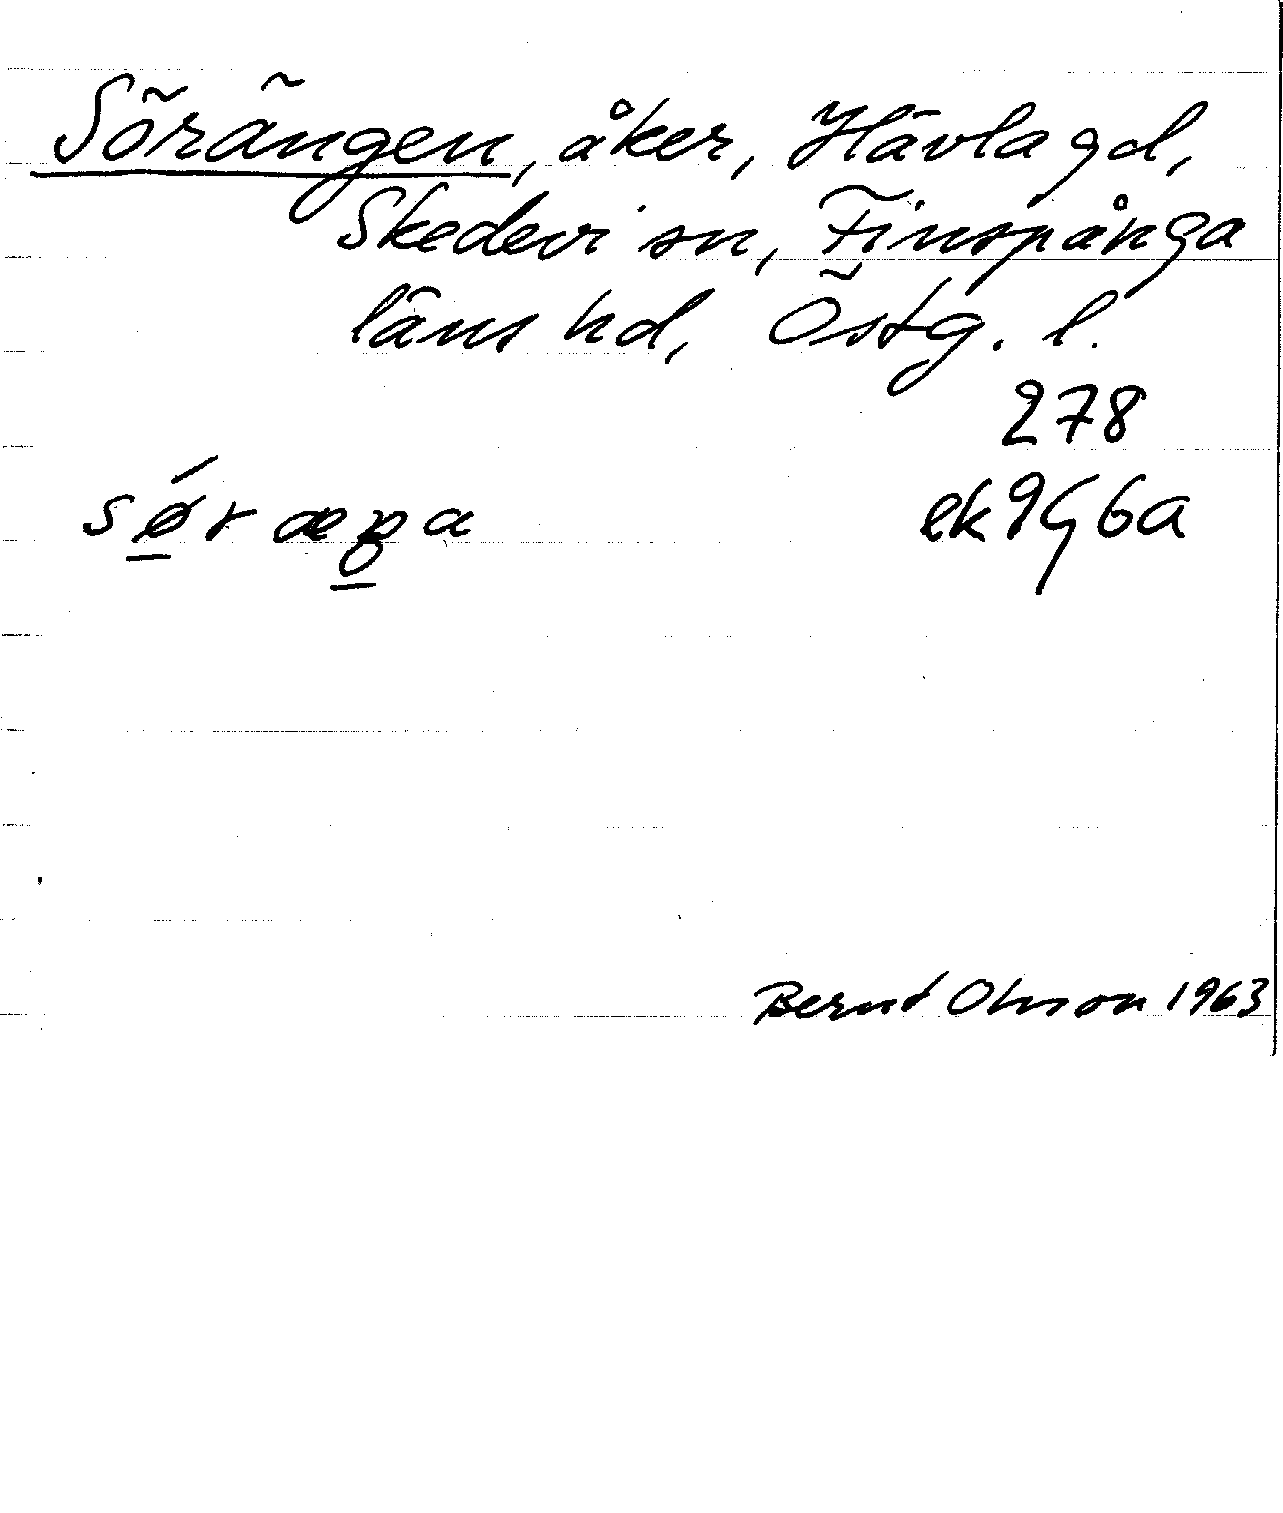 Sörängen, åker, Hävla gd,
Skedevi sn, Finspånga
läns hd, Östg. l.
278
ek 9G 6a
Bernt Olsson 1963